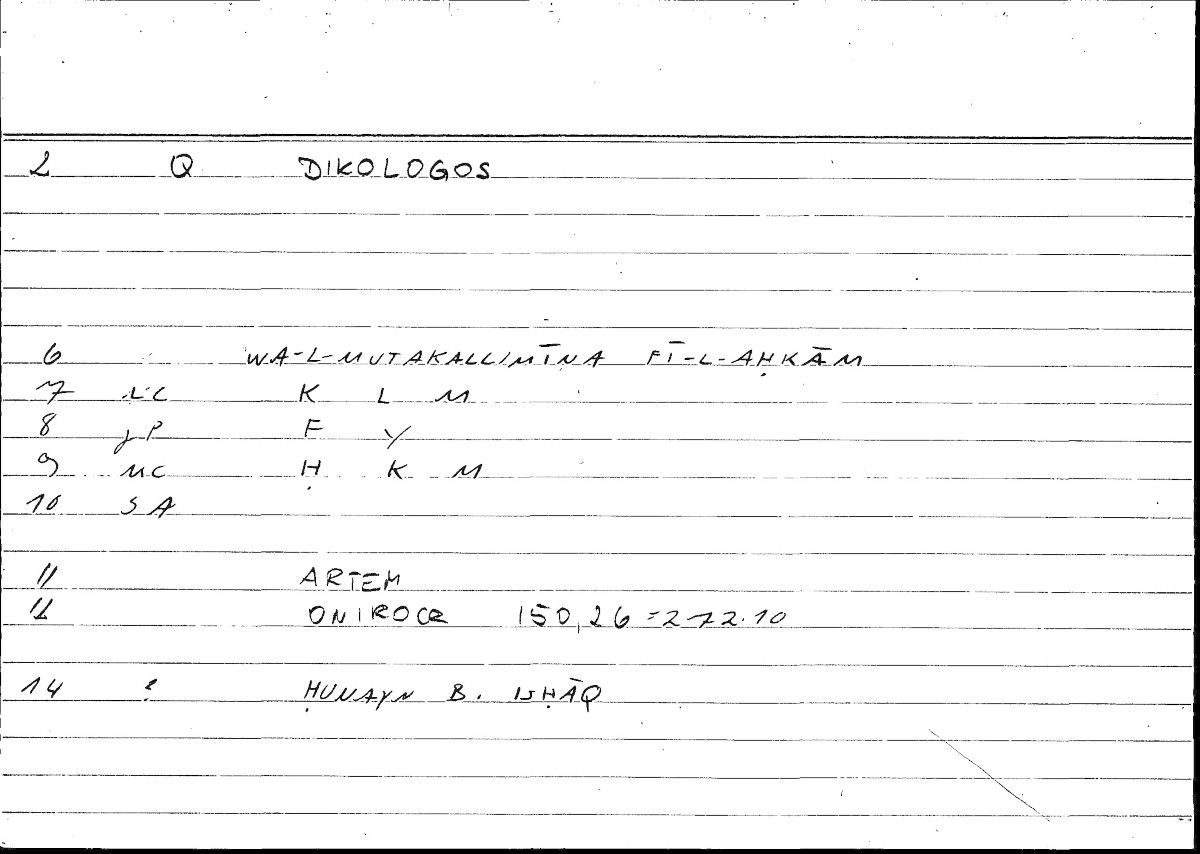 2 Q DIKOLOGOS
6 WA-L-MUTAKALLIMĪNA FĪ-L-AḤKĀM
7 K L M
8 F Y
9 MC Ḥ K M
10 SA
11 ARTEM
12 ONIROCR 150,26=272.10
14 ḤUNAYN B. ISḤĀQ